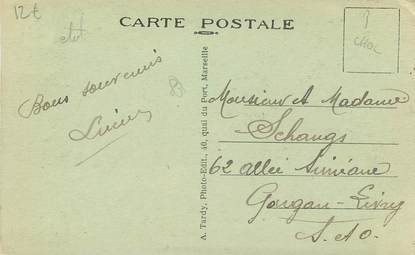 12€
CARTE POSTALE
CHOC
Bons souvenirs
A. Tardy, Photo-Edit., 40, quai du Port, Marseille
Monsieur et Madame
Schangs
62 allée Siméane
Gargan-Livry
S. et O.